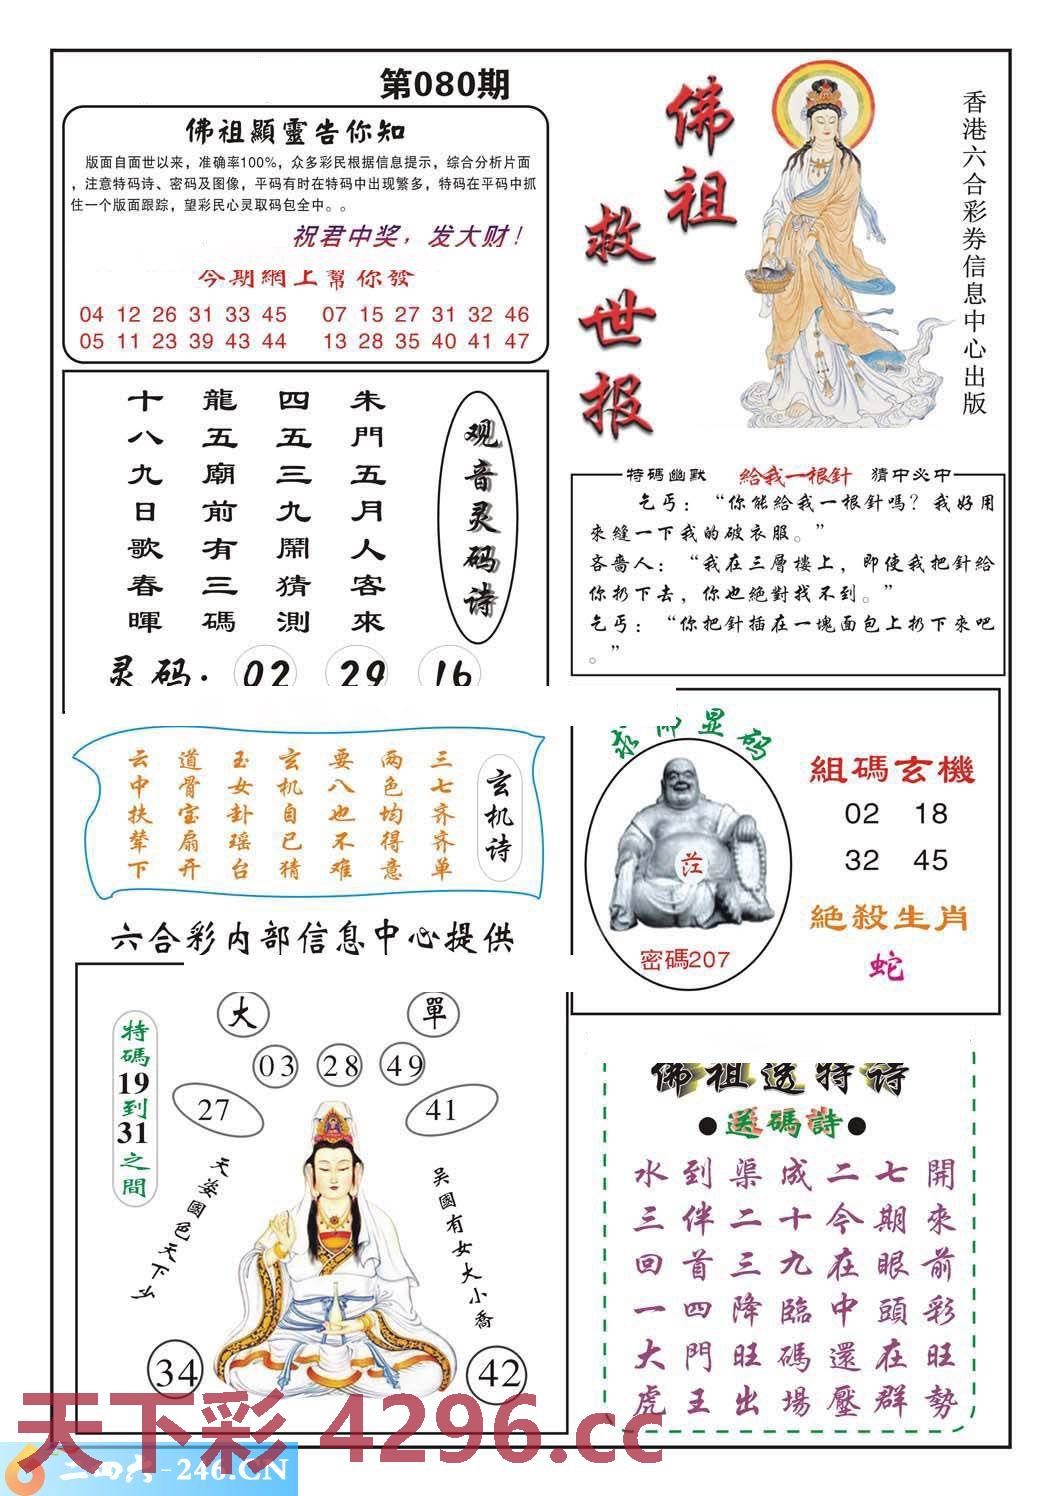 第080期
佛祖顯靈告你知
版面自面世以来，准确率100%，众多彩民根据信息提示，综合分析片面
，注意特码诗、密码及图像，平码有时在特码中出现繁多，特码在平码中抓
住一个版面跟踪，望彩民心灵取码包全中。。
祝君中奖，发大财！
今期網上幫你發
04 12 26 31 33 45 07 15 27 31 32 46
05 11 23 39 43 44 13 28 35 40 41 47
佛祖
救世报
香港六合彩券信息中心出版
观音灵码诗
朱門五月人客來
四五三九鬧猜測
龍五廟前有三碼
十八九日歌春暉
灵码：02 29 16
特碼幽默 給我一根針 猜中必中
乞丐：“你能給我一根針嗎？我好用
來縫一下我的破衣服。”
吝嗇人：“我在三層樓上，即使我把針給
你扔下去，你也絕對找不到。”
乞丐：“你把針插在一塊面包上扔下來吧
。”
玄机诗
三七齐齐单
两色均得意
要八也不难
玄机自已猜
玉女卦瑶台
道骨宝扇开
云中扶辇下
六合彩内部信息中心提供
求佛显码
茳
密碼207
組碼玄機
02 18
32 45
絕殺生肖
蛇
大 單
03 28 49
27 41
特碼19到31之間
天姿國色天下么
吴國有女大小喬
34 42
佛祖透特诗
●送碼詩●
水到渠成二七開
三伴二十今期來
回首三九在眼前
一四降臨中頭彩
大門旺碼還在旺
虎王出場壓群勢
天下彩 4296.cc
二四六-246.CN